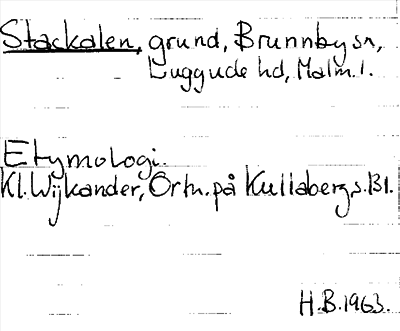 Stackalen, grund, Brunnby sn,
Luggude hd, Malm. l.
Etymologi.
Kl. Wijkander, Ortn. på Kullaberg s. 131.
H.B. 1963.